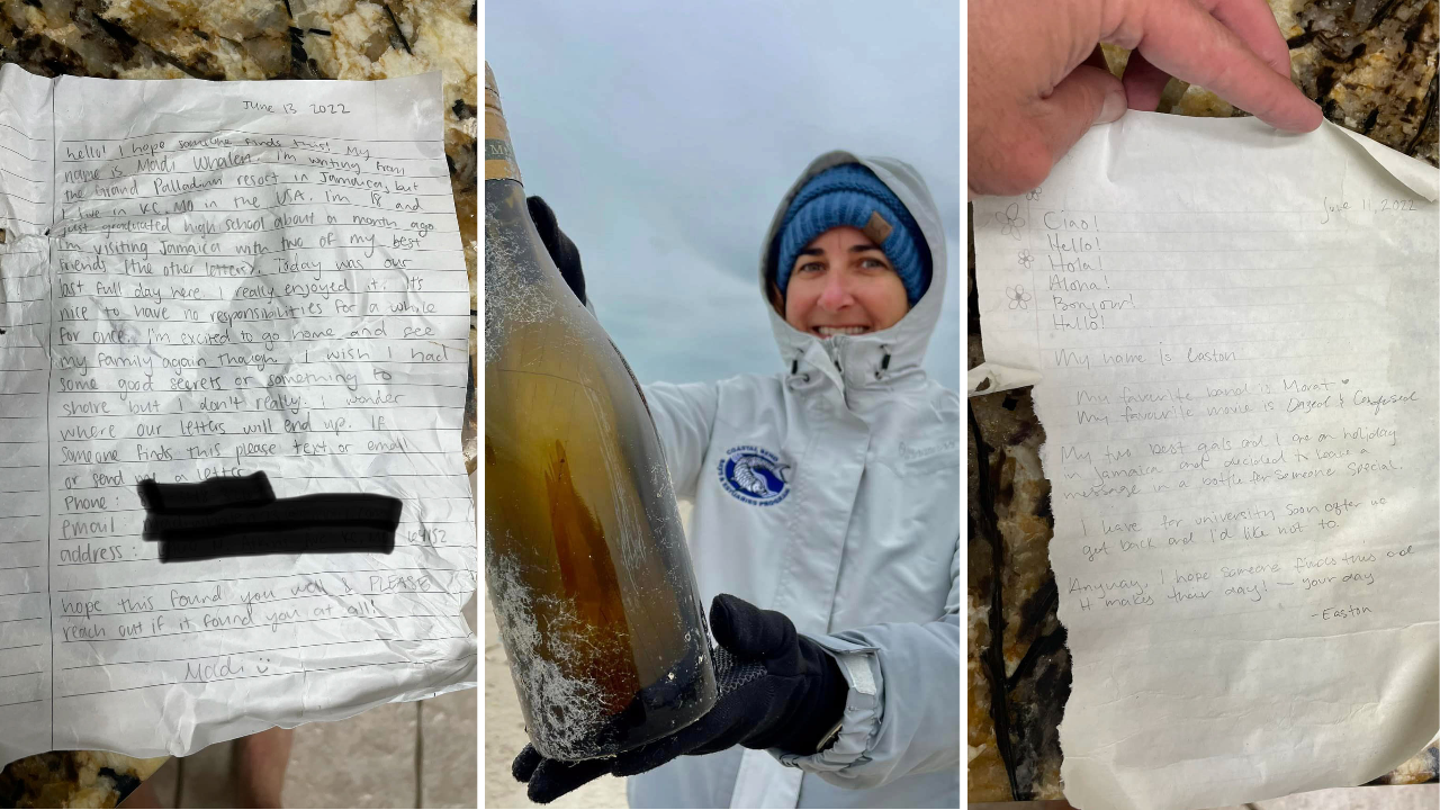 June 13 2022
hello! I hope someone finds this! My
name is Madi Whalen. I'm writing from
the Grand Palladium resort in Jamaica, but
I live in KC, MO in the USA. I'm 18 and
just graduated high school about a month ago
I'm visiting Jamaica with two of my best
friends (the other letters). Today was our
last full day here. I really enjoyed it. It's
nice to have no responsibilities for a while
for once. I'm excited to go home and see
my family again though. I wish I had
some good secrets or something to
share but I don't really. I wonder
where our letters will end up. If
someone finds this please text or email
or send me a letter
Phone:
email
address:
hope this found you well & PLEASE
reach out if it found you at all!
Madi
COASTAL BEND
BAYS & ESTUARIES PROGRAM
June 11, 2022
Ciao!
Hello!
Hola!
Aloha!
Bonjour!
Hallo!
My name is Easton
My favorite band is Morat
My favourite movie is Dazed & Confused
My two best gals and I are on holiday
in Jamaica and decided to leave a
message in a bottle for someone special.
I leave for university soon after we
get back and I'd like not to.
Anyway, I hope someone finds this and
it makes their day! — your day
-Easton